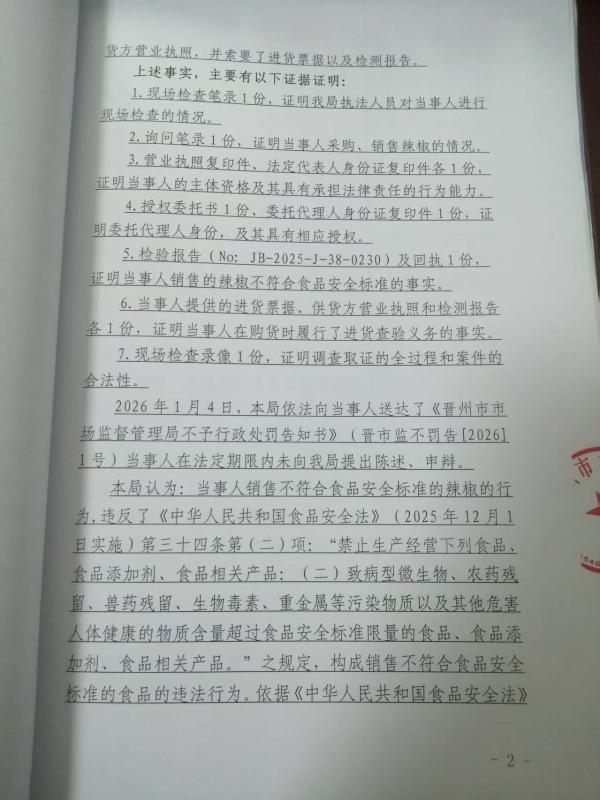 货方营业执照，并索要了进货票据以及检测报告。
上述事实，主要有以下证据证明：
1.现场检查笔录1份，证明我局执法人员对当事人进行
现场检查的情况。
2.询问笔录1份，证明当事人采购、销售辣椒的情况。
3.营业执照复印件、法定代表人身份证复印件各1份，
证明当事人的主体资格及其具有承担法律责任的行为能力。
4.授权委托书1份、委托代理人身份证复印件1份，证
明委托代理人身份，及其具有相应授权。
5.检验报告（No：JB-2025-J-38-0230）及回执1份，
证明当事人销售的辣椒不符合食品安全标准的事实。
6.当事人提供的进货票据、供货方营业执照和检测报告
各1份，证明当事人在购货时履行了进货查验义务的事实。
7.现场检查录像1份，证明调查取证的全过程和案件的
合法性。
2026年1月4日，本局依法向当事人送达了《晋州市市
场监督管理局不予行政处罚告知书》（晋市监不罚告[2026]
1号）当事人在法定期限内未向我局提出陈述、申辩。
本局认为：当事人销售不符合食品安全标准的辣椒的行
为,违反了《中华人民共和国食品安全法》（2025年12月1
日实施）第三十四条第（二）项：“禁止生产经营下列食品、
食品添加剂、食品相关产品：（二）致病型微生物、农药残
留、兽药残留、生物毒素、重金属等污染物质以及其他危害
人体健康的物质含量超过食品安全标准限量的食品、食品添
加剂、食品相关产品。”之规定，构成销售不符合食品安全
标准的食品的违法行为。依据《中华人民共和国食品安全法》
- 2 -